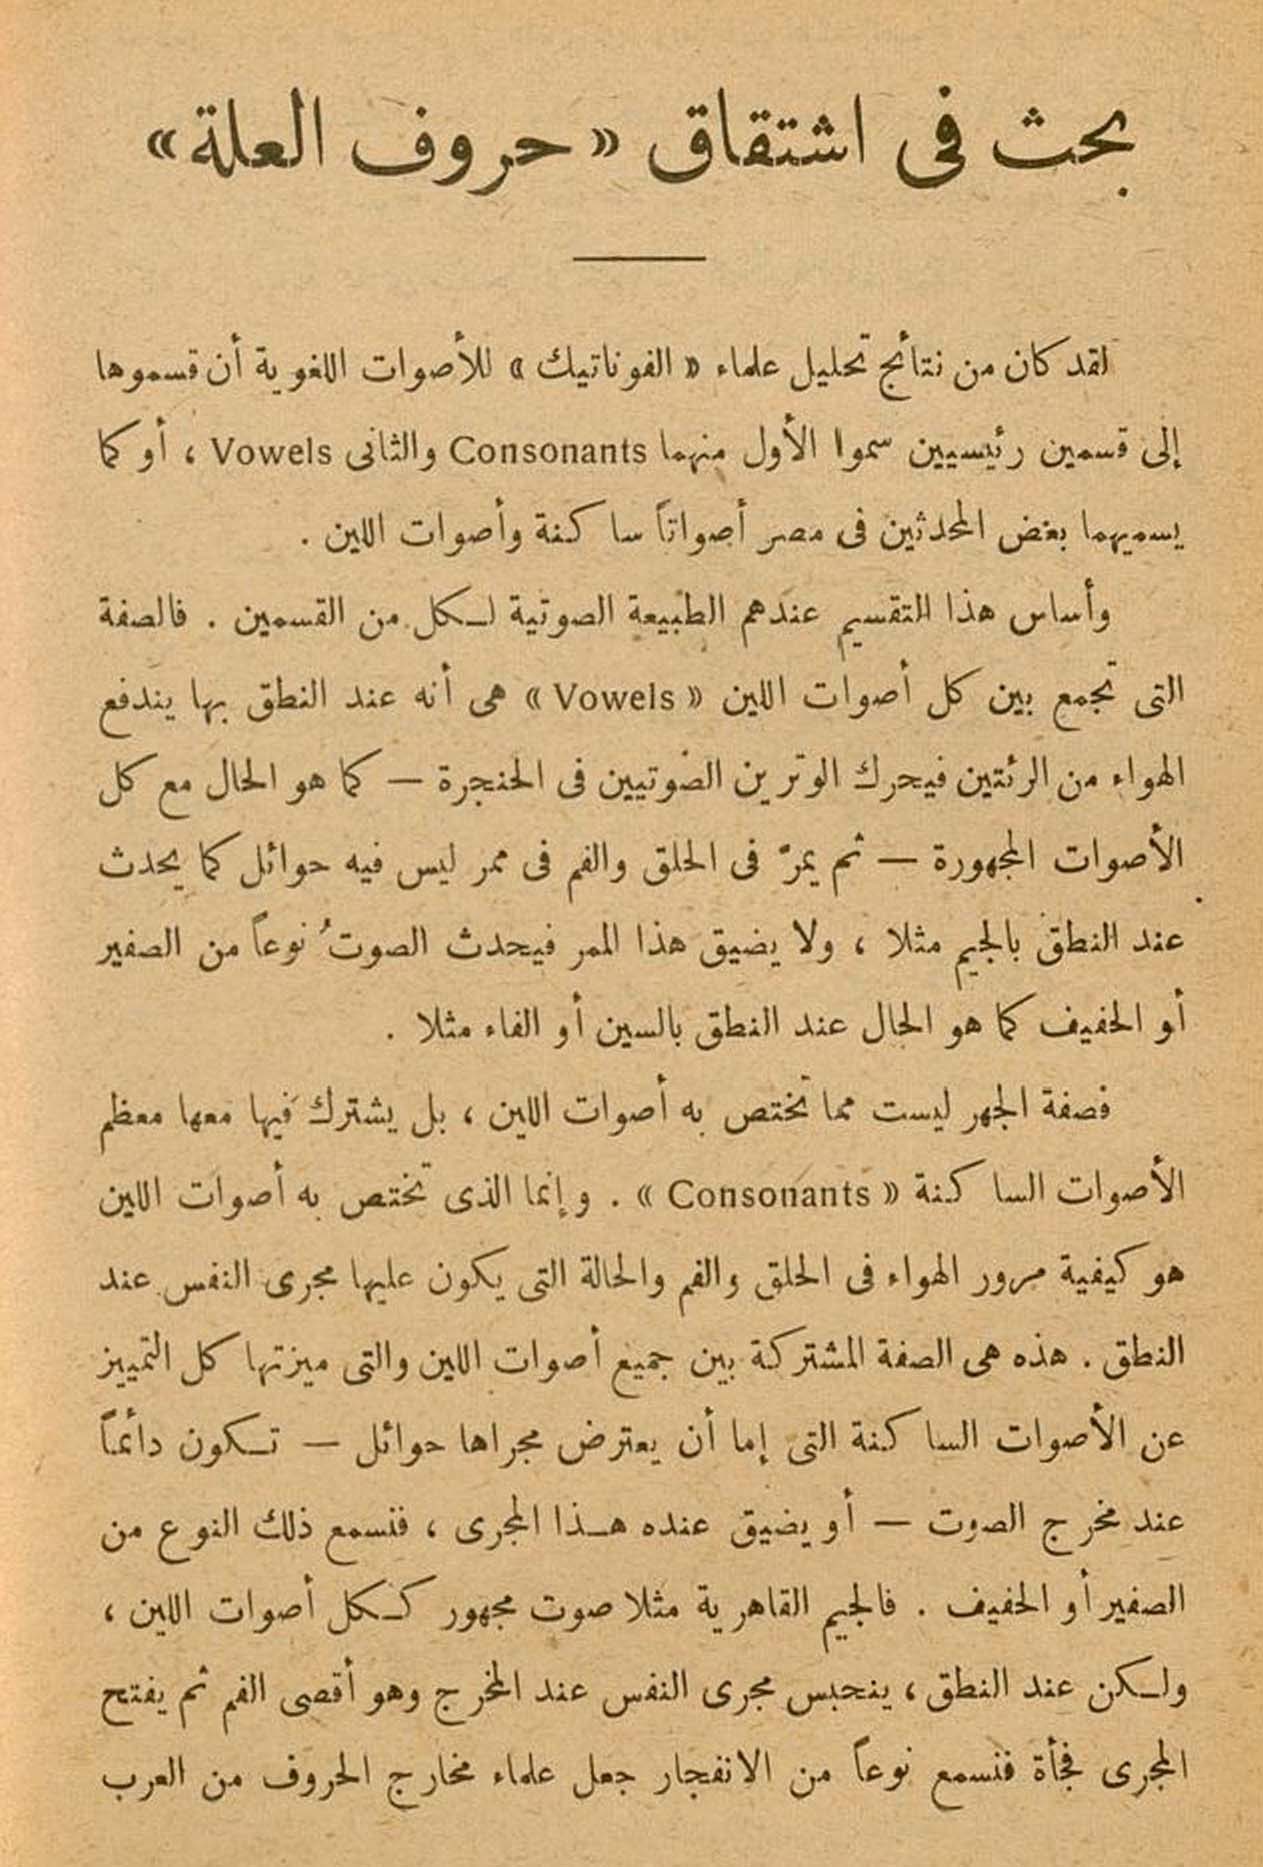 بحث فى اشتقاق « حروف العلة »
لقد كان من نتائج تحليل علماء « الفوناتيك » للأصوات اللغوية أن قسموها
إلى قسمين رئيسيين سموا الأول منهما Consonants والثانى Vowels ، أو كما
يسميهما بعض المحدثين فى مصر أصواتاً ساكنة وأصوات اللين .
وأساس هذا التقسيم عندهم الطبيعة الصوتية لكل من القسمين . فالصفة
التى تجمع بين كل أصوات اللين « Vowels » هى أنه عند النطق بها يندفع
الهواء من الرئتين فيحرك الوترين الصوتيين فى الحنجرة — كما هو الحال مع كل
الأصوات المجهورة — ثم يمرّ فى الحلق والفم فى ممر ليس فيه حوائل كما يحدث
عند النطق بالجيم مثلا ، ولا يضيق هذا الممر فيحدث الصوتُ نوعاً من الصفير
أو الحفيف كما هو الحال عند النطق بالسين أو الفاء مثلا .
فصفة الجهر ليست مما تختص به أصوات اللين ، بل يشترك فيها معها معظم
الأصوات الساكنة « Consonants » . وإنما الذى تختص به أصوات اللين
هو كيفية مرور الهواء فى الحلق والفم والحالة التى يكون عليها مجرى النفس عند
النطق . هذه هى الصفة المشتركة بين جميع أصوات اللين والتى ميزتها كل التمييز
عن الأصوات الساكنة التى إما أن يعترض مجراها حوائل — تكون دائماً
عند مخرج الصوت — أو يضيق عنده هذا المجرى ، فنسمع ذلك النوع من
الصفير أو الحفيف . فالجيم القاهرية مثلا صوت مجهور ككل أصوات اللين ،
ولكن عند النطق ، ينحبس مجرى النفس عند المخرج وهو أقصى الفم ثم يفتح
المجرى فجأة فنسمع نوعاً من الانفجار جعل علماء مخارج الحروف من العرب